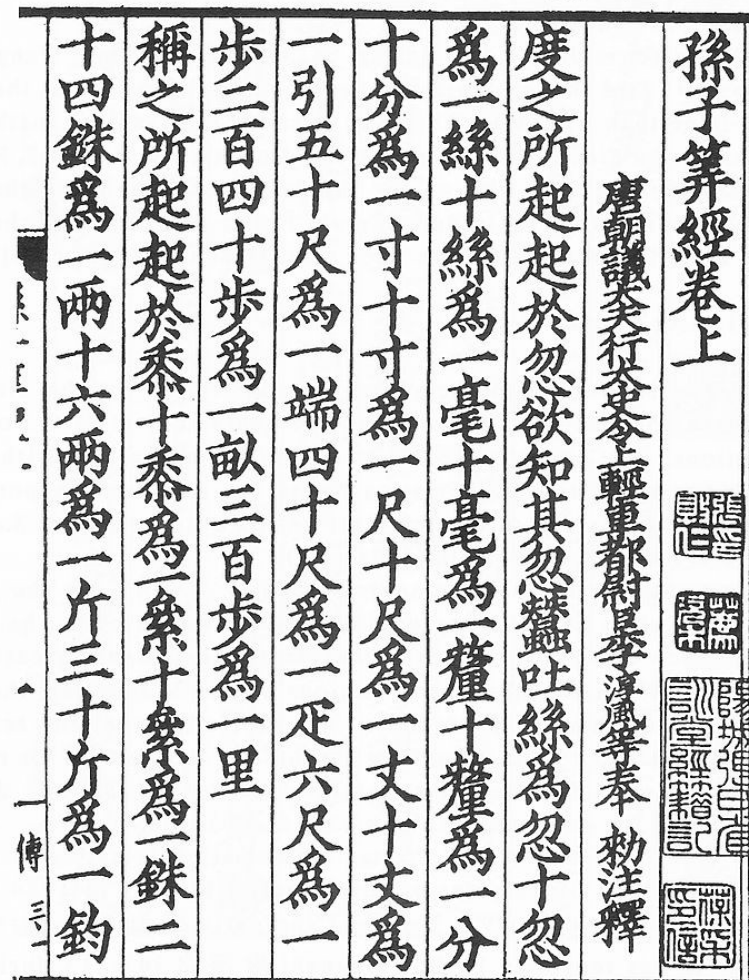 孫子筭經卷上
唐朝議大夫行太史令上輕車都尉臣李淳風等奉 勑注釋
度之所起起於忽欲知其忽蠶吐絲為忽十忽
為一絲十絲為一毫十毫為一氂十氂為一分
十分為一寸十寸為一尺十尺為一丈十丈為
一引五十尺為一端四十尺為一疋六尺為一
步二百四十步為一畝三百步為一里
稱之所起起於黍十黍為一絫十絫為一銖二
十四銖為一兩十六兩為一斤三十斤為一鈞
一 傳 三